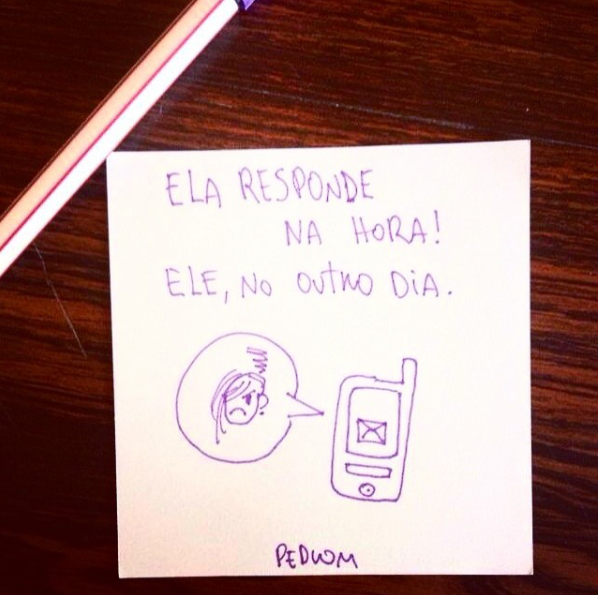 ELA RESPONDE
NA HORA!
ELE, NO OUTRO DIA.
PEDROM